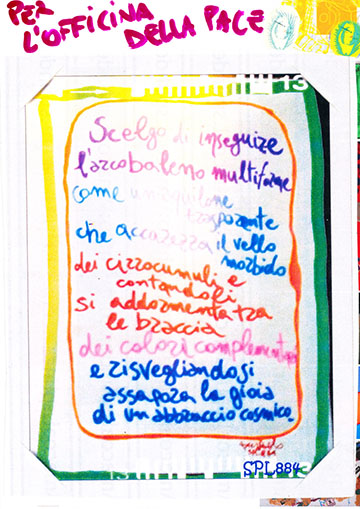 PER
L'OFFICINA
DELLA PACE
13
Scelgo di inseguire
l'arcobaleno multiforme
come un aquilone
trasparente
che accarezza il vello
morbido
dei cirrocumuli e
contandoli
si addormenta tra
le braccia
dei colori complementari
e risvegliandosi
assapora la gioia
di un abbraccio cosmico.
SPL884
13